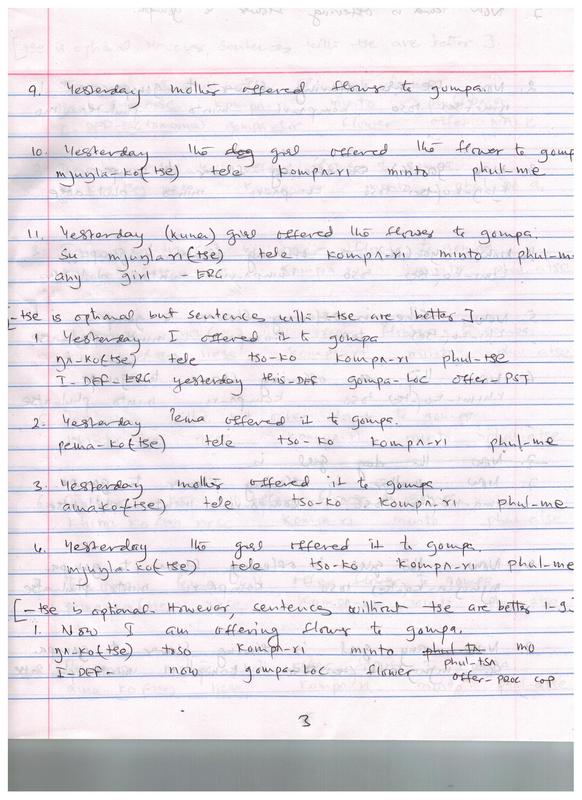 9. Yesterday mother offered flower to gompa.
10. Yesterday the dog girl offered the flower to gomp
mjuŋla-ko(-tse) tele kompʌ-ri minto phul-me
11. Yesterday (kunei) girl offered the flower to gompa.
Su mjuŋla ri(-tse) tele kompʌ-ri minto phul-m
any girl -ERG
[-tse is optional but sentences with -tse are better].
1. Yesterday I offered it to gompa
ŋʌ-ko(-tse) tele tso-ko kompʌ-ri phul-tse
I-DEF-ERG yesterday this-DEF gompa-Loc offer-PST
2. Yesterday Pema offered it to gompa.
pema-ko(-tse) tele tso-ko kompʌ-ri phul-me
3. Yesterday mother offered it to gompa.
ama ko(-tse) tele tso-ko kompʌ-ri phul-me
4. Yesterday the girl offered it to gompa.
mjuŋla-ko(-tse) tele tso-ko kompʌ-ri phul-me
[-tse is optional. However, sentences without -tse are better 1-9.
1. Now I am offering flower to gompa.
ŋʌ-ko(-tse) toso kompʌ-ri minto mo
phul-tsʌ
I-DEF- now gompa-Loc flower offer-PROG cop
3